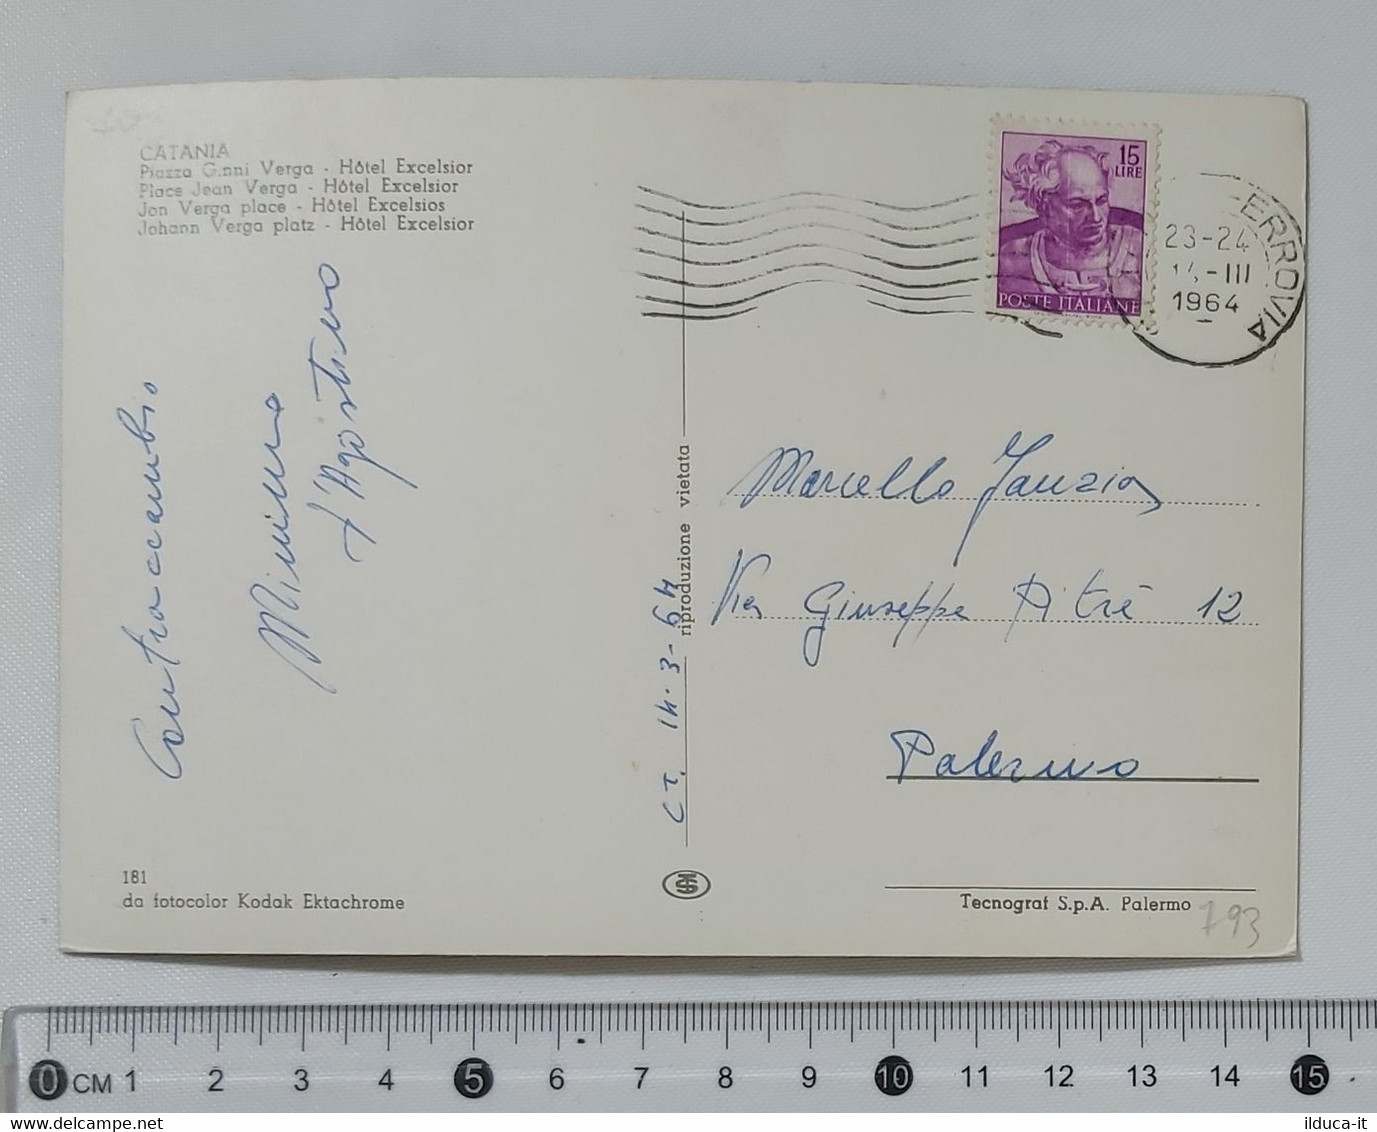 CATANIA
Piazza G.nni Verga - Hôtel Excelsior
Place Jean Verga - Hôtel Excelsior
Jon Verga place - Hôtel Excelsios
Johann Verga platz - Hôtel Excelsior
Contraccambio
Mimma
d'Agostino
181
da fotocolor Kodak Ektachrome
CT. 14.3-64
riproduzione vietata
15
LIRE
POSTE ITALIANE
FERROVIA
23-24
14-III
1964
Marcello
Via Giuseppe Pitrè 12
Palermo
Tecnograf S.p.A. Palermo
793
0 CM 1 2 3 4 5 6 7 8 9 10 11 12 13 14 15
ilduca-it